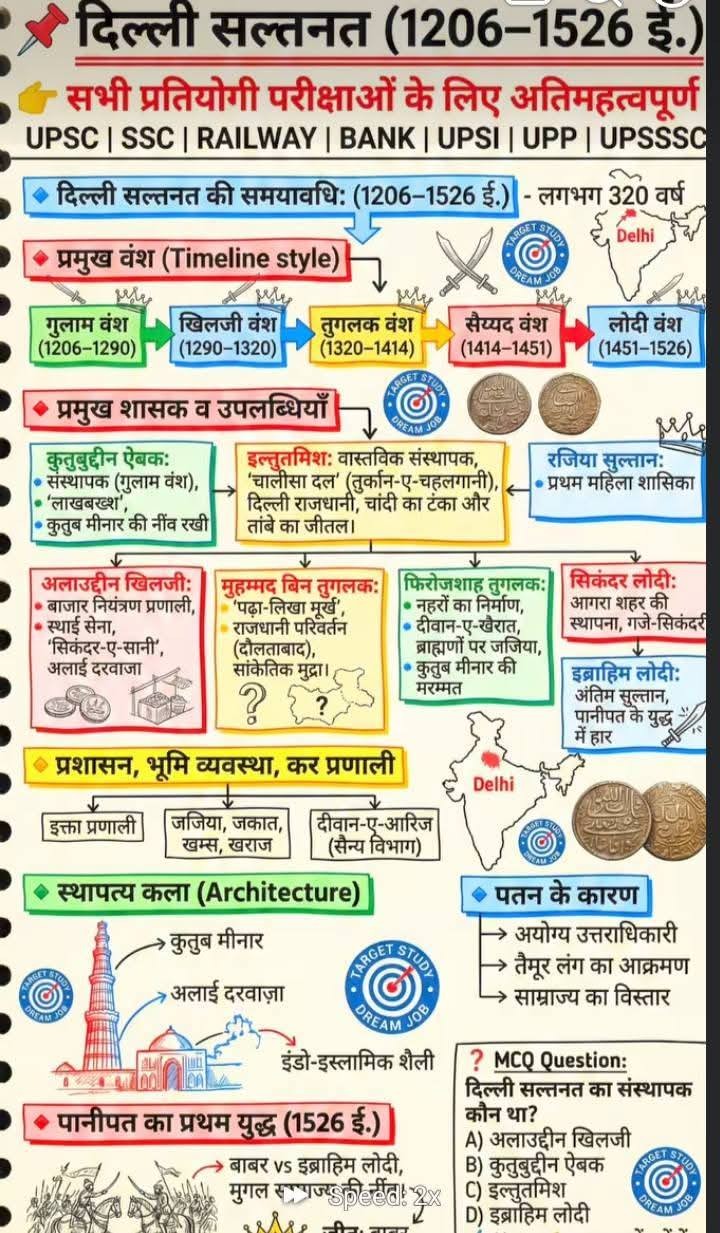 दिल्ली सल्तनत (1206–1526 ई.)
सभी प्रतियोगी परीक्षाओं के लिए अतिमहत्वपूर्ण
UPSC | SSC | RAILWAY | BANK | UPSI | UPP | UPSSSC
दिल्ली सल्तनत की समयावधि: (1206–1526 ई.) - लगभग 320 वर्ष
Delhi
TARGET STUDY
DREAM JOB
प्रमुख वंश (Timeline style)
गुलाम वंश
(1206–1290)
खिलजी वंश
(1290–1320)
तुगलक वंश
(1320–1414)
सैय्यद वंश
(1414–1451)
लोदी वंश
(1451–1526)
प्रमुख शासक व उपलब्धियाँ
TARGET STUDY
DREAM JOB
कुतुबुद्दीन ऐबक:
संस्थापक (गुलाम वंश),
'लाखबख्श',
कुतुब मीनार की नींव रखी
इल्तुतमिश: वास्तविक संस्थापक,
'चालीसा दल' (तुर्कान-ए-चहलगानी),
दिल्ली राजधानी, चांदी का टंका और
तांबे का जीतल।
रजिया सुल्तान:
प्रथम महिला शासिका
अलाउद्दीन खिलजी:
बाजार नियंत्रण प्रणाली,
स्थाई सेना,
'सिकंदर-ए-सानी',
अलाई दरवाजा
मुहम्मद बिन तुगलक:
'पढ़ा-लिखा मूर्ख',
राजधानी परिवर्तन
(दौलताबाद),
सांकेतिक मुद्रा।
?
?
फिरोजशाह तुगलक:
नहरों का निर्माण,
दीवान-ए-खैरात,
ब्राह्मणों पर जजिया,
कुतुब मीनार की
मरम्मत
सिकंदर लोदी:
आगरा शहर की
स्थापना, गजे-सिकंदरी
इब्राहिम लोदी:
अंतिम सुल्तान,
पानीपत के युद्ध
में हार
प्रशासन, भूमि व्यवस्था, कर प्रणाली
इक्ता प्रणाली
जजिया, जकात,
खम्स, खराज
दीवान-ए-आरिज
(सैन्य विभाग)
Delhi
TARGET STUDY
DREAM JOB
स्थापत्य कला (Architecture)
कुतुब मीनार
अलाई दरवाज़ा
इंडो-इस्लामिक शैली
TARGET STUDY
DREAM JOB
TARGET STUDY
DREAM JOB
पतन के कारण
अयोग्य उत्तराधिकारी
तैमूर लंग का आक्रमण
साम्राज्य का विस्तार
पानीपत का प्रथम युद्ध (1526 ई.)
बाबर vs इब्राहिम लोदी,
मुगल की
Speed: 2x
जीत: बाबर
? MCQ Question:
दिल्ली सल्तनत का संस्थापक
कौन था?
A) अलाउद्दीन खिलजी
B) कुतुबुद्दीन ऐबक
C) इल्तुतमिश
D) इब्राहिम लोदी
TARGET STUDY
DREAM JOB